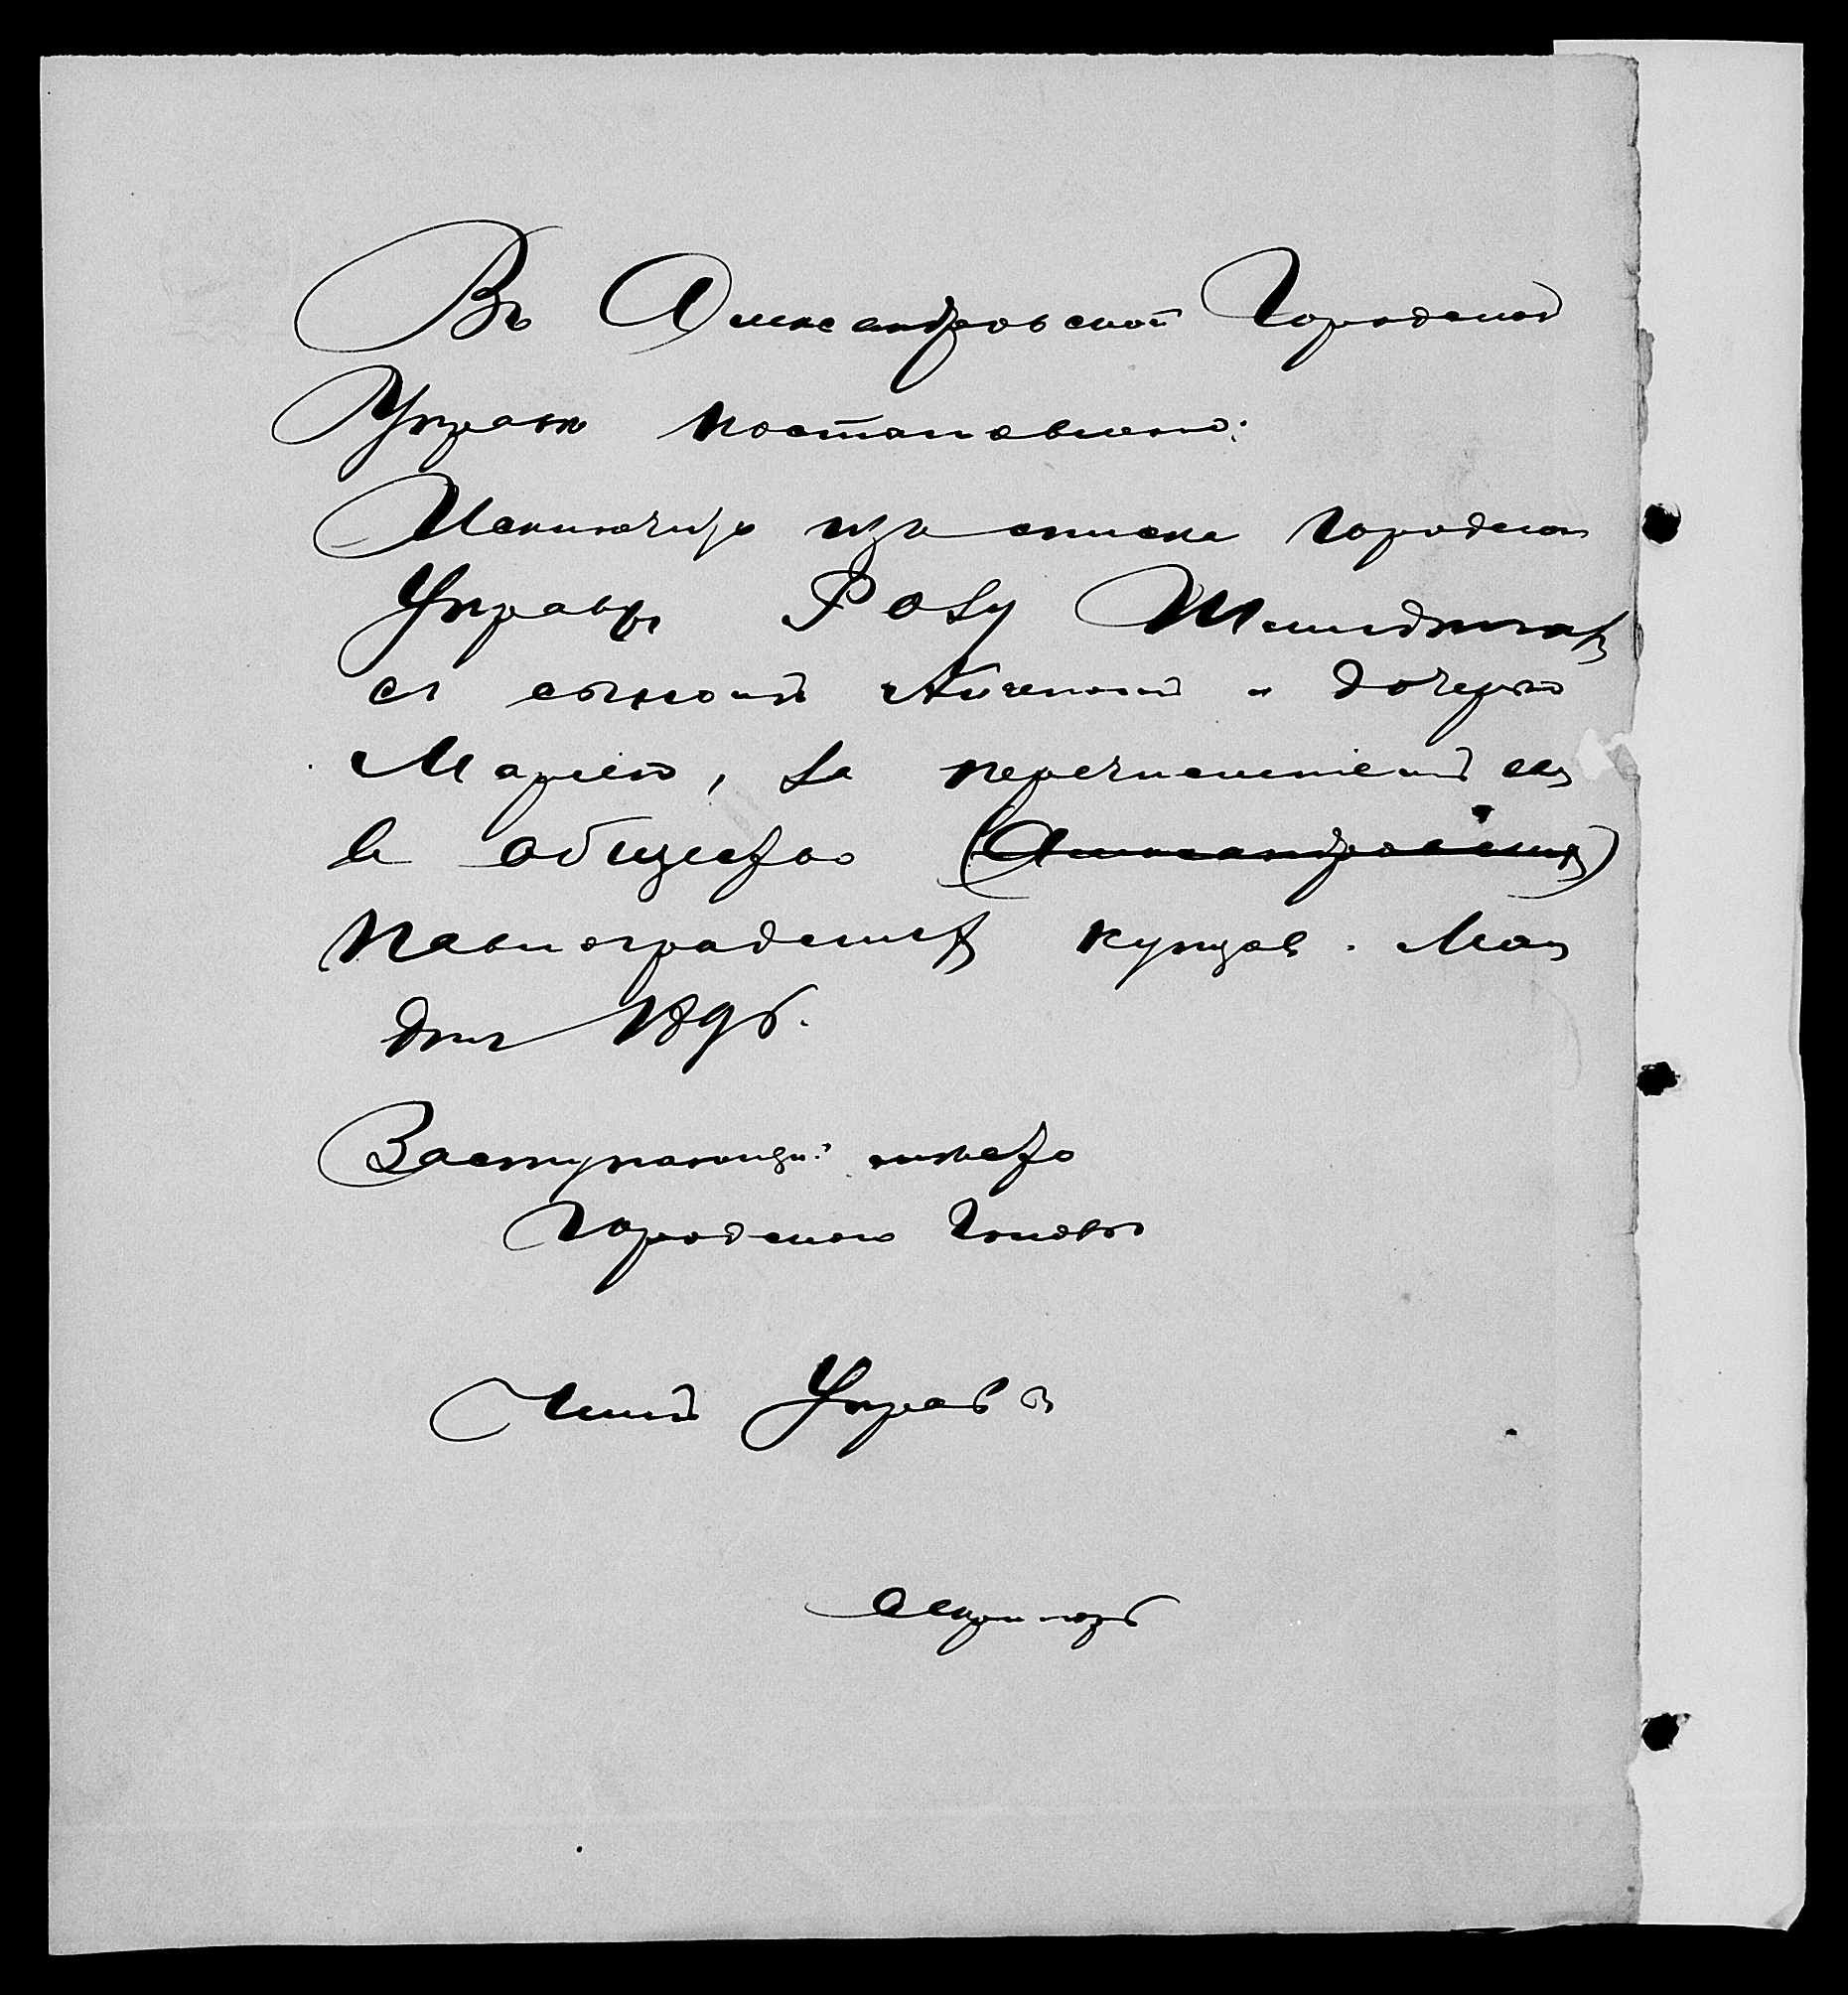 Въ Александровской Городской
Управѣ постановлено:
Исключить изъ списка Городской
Управы Розу
съ сыномъ и дочерью
Марiею, за перечисленiемъ ихъ
въ общество (Александровскихъ)
Павлоградскихъ купцовъ. Мая
дня 1896.
Заступающiй мѣсто
Городского Головы
Члены Управы
Секретарь